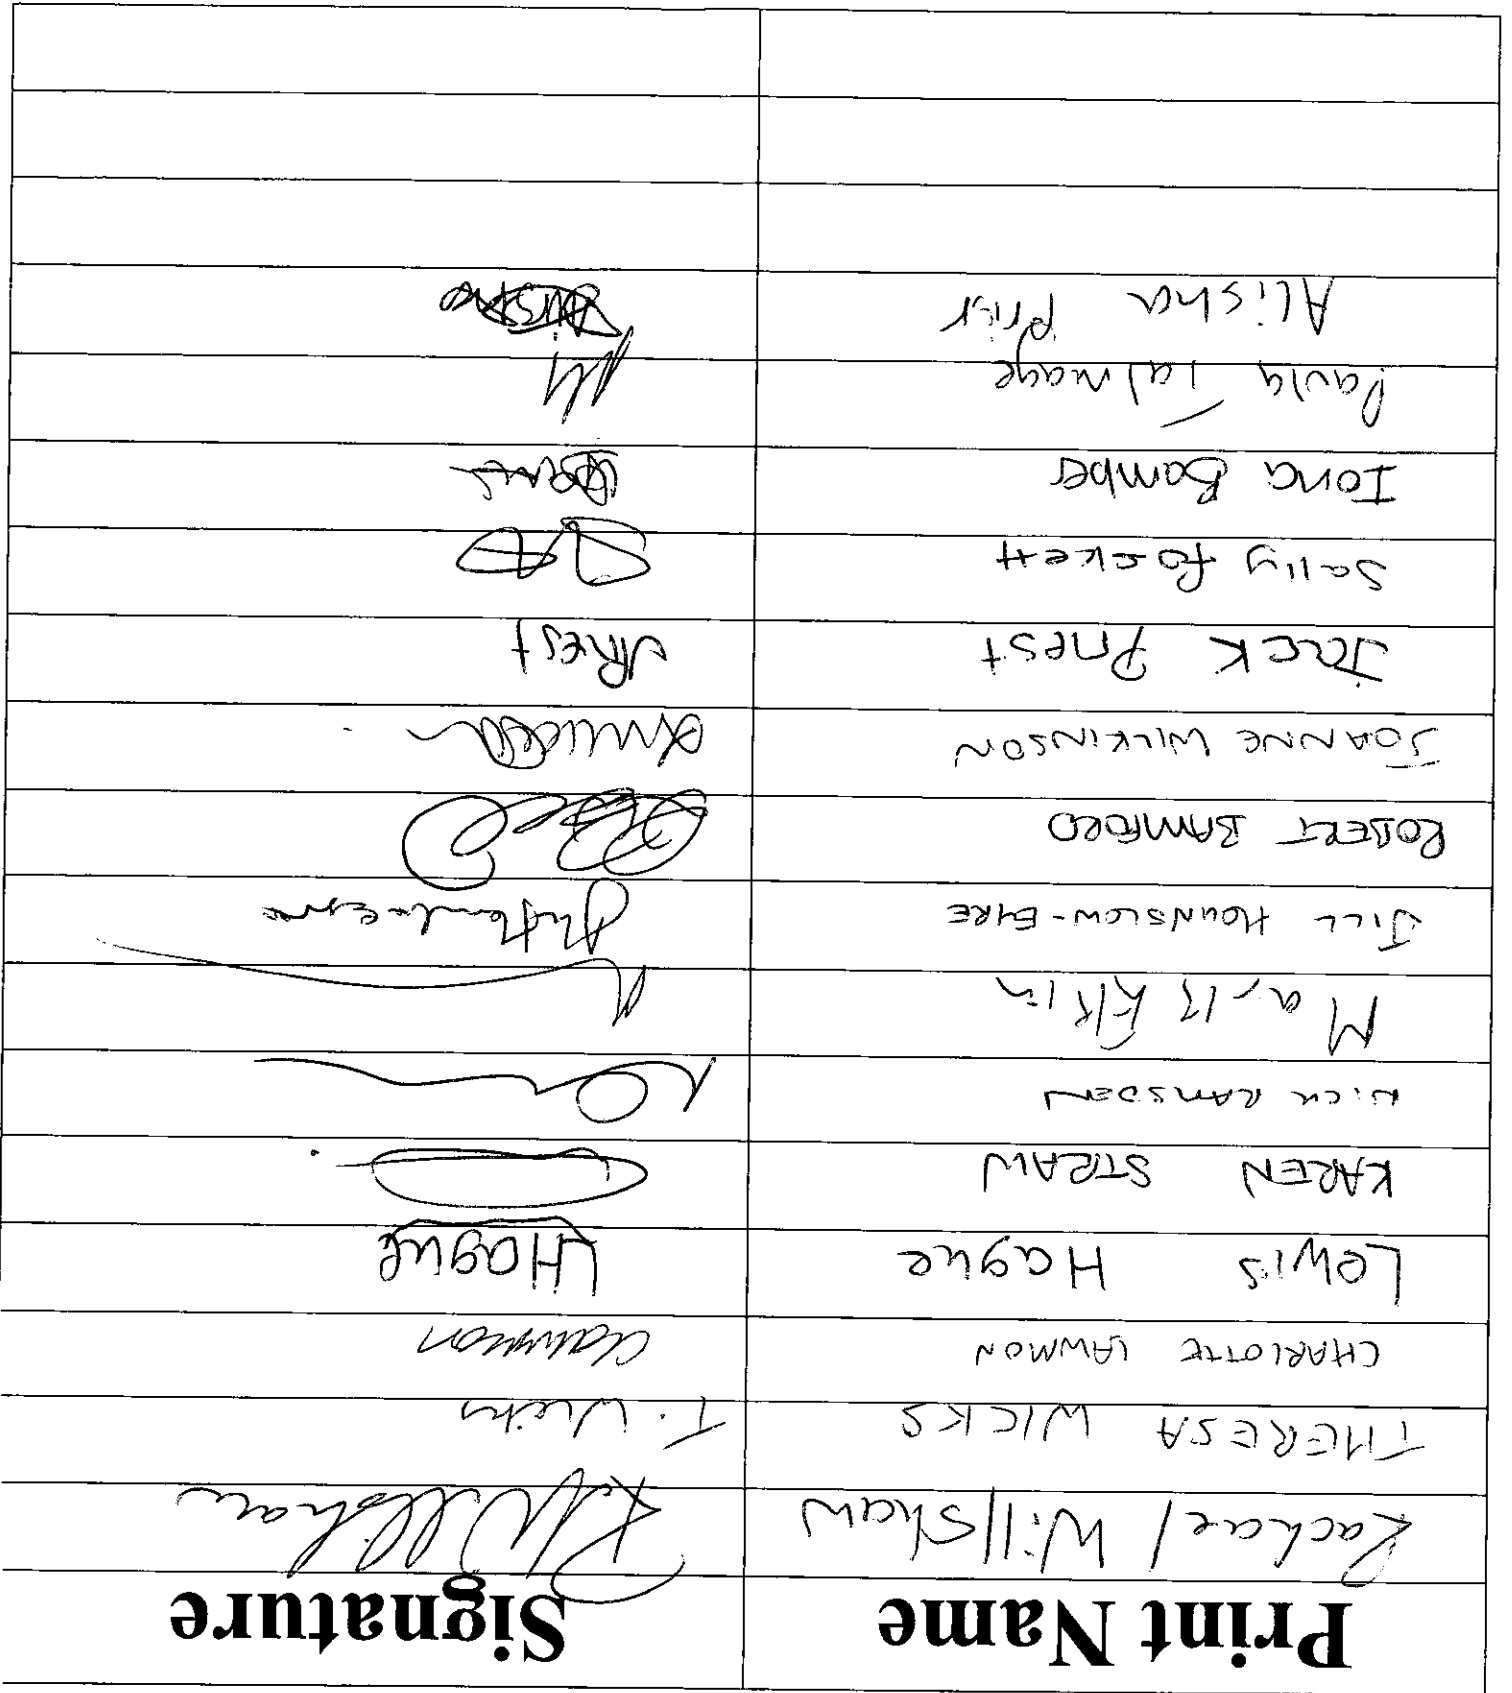 Print Name Signature
Rachael Willshaw R Willshaw
THERESA WICKS T. Wicks
CHARLOTTE LAWMON CLawmon
Lewis Hague LHague
KAREN STRAW
NICK RAMSDEN
Mark Elkin
JILL HOUNSLOW-EYRE
ROBERT BAMFORD
JOANNE WILKINSON
Jack Priest JPriest
Sally Fockett
Iona Bamber
Paula Talmage
Alisha Prior Alisha